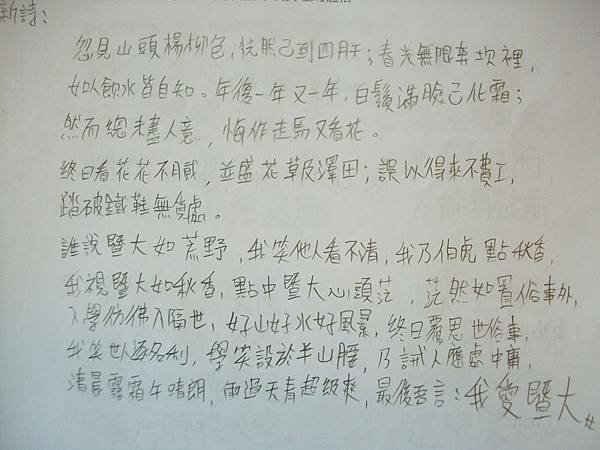 新詩：
忽見山頭楊柳色，恍然已到四月天；春光無限奔坎裡，
如以飲水皆自知。年復一年又一年，白鬚滿臉已化霜；
然而總未盡人意，悔作走馬又看花。
終日看花花不月貳，並盛花草及澤田；誤以得來不費工，
踏破鐵鞋無覓處。
誰說暨大如荒野，我笑他人看不清，我乃伯虎點秋香，
我視暨大如秋香，點中暨大心頭茫，茫然如置俗事外，
入學彷彿入隔世，好山好水好風景，終日覆思世俗事，
我笑世人逐名利，學笑設於半山腰，乃誡人應處中庸，
清晨露霜午晴朗，雨過天青超級爽，最後吾言：我愛暨大